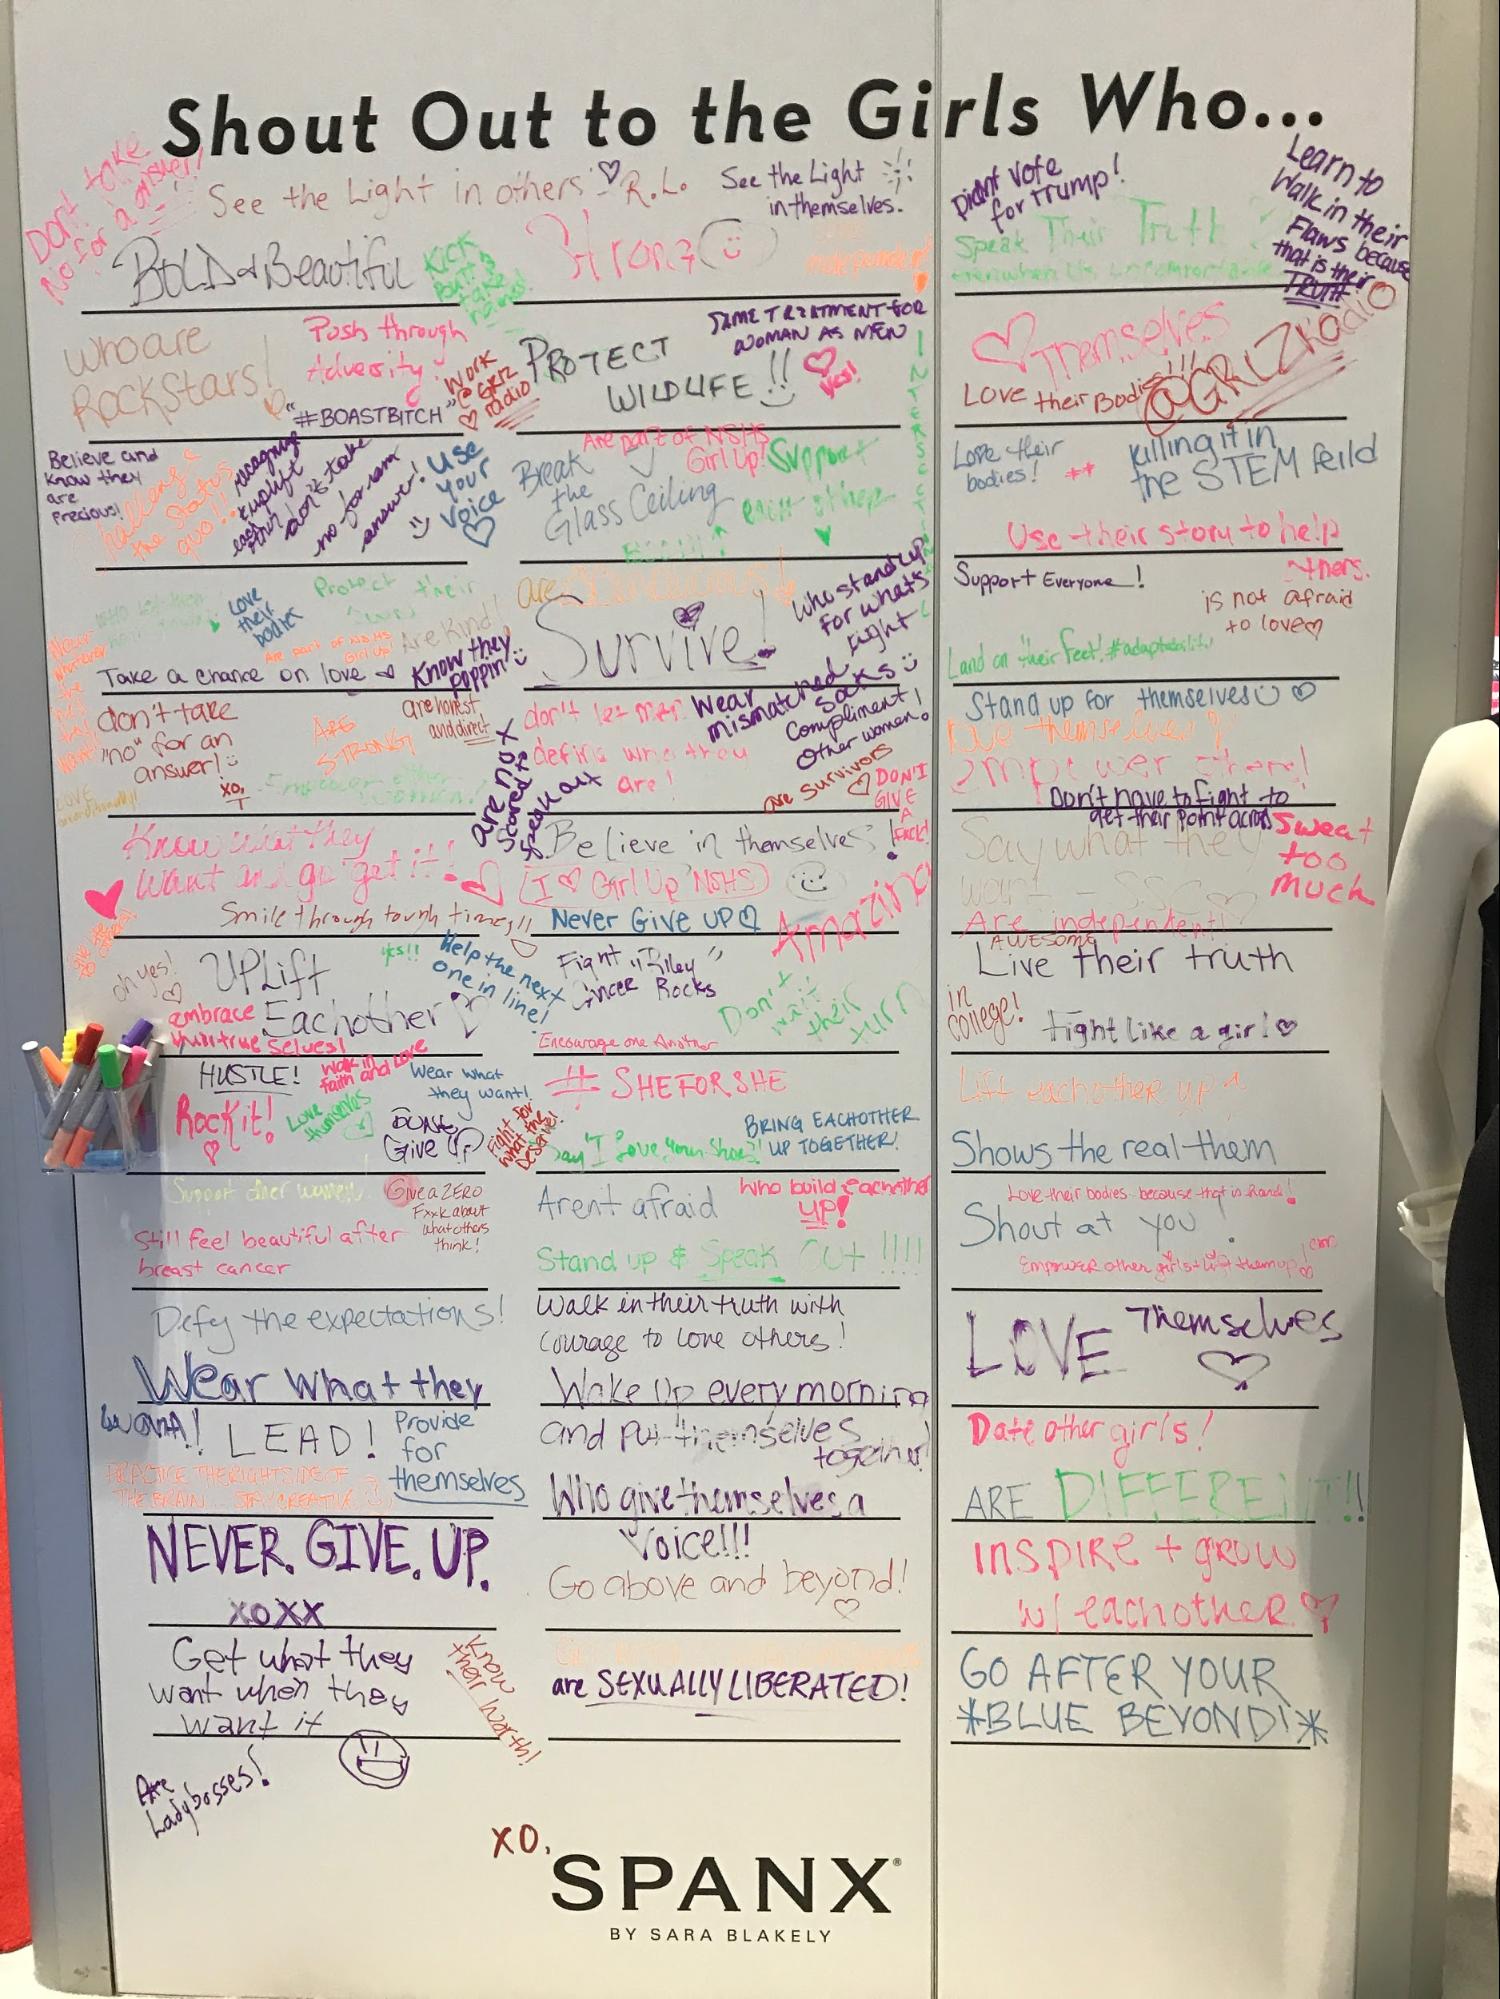 Shout Out to the Girls Who...
Don't take
No for a
answer!
See the Light in others R.L.
See the Light
in themselves.
BOLD & Beautiful
Kick
Butt &
take
names!
Strong
independent
who are
Rockstars!
Push through
Adversity
"#BOASTBITCH"
WORK
@ GRLZ
radio
PROTECT
WILDLIFE!!
SAME TREATMENT FOR
WOMAN AS MEN
Yes!
Believe and
Know they
are
Precious!
the Status
quo!!
recognize
uplift
each
other
don't take
no for an
answer!
USE
YOUR
VOICE
Are part of NSHS
Girl Up!
Break
the
Glass Ceiling
Support
each other
INTERSECTIONAL
Love
their
bodies
Protect their
Are part of NSHS
Girl Up!
Are Kind!
Take a chance on love
Know they
poppin
are
Survive!
who stand up
for whats
right
don't take
"no" for an
answer!
xo,
T
ARE
STRONG!
are honest
and direct
Empower other
women!
are not
scared to
speak out
don't let men
define who they
are!
Wear
mismatched
socks
Compliment
other women!
are survivors
DON'T
GIVE
A
Fuck!
Know what they
want and go get it!
Smile through tough times!!
Believe in themselves!
(I ♡ Girl Up NSHS)
Never Give up
Amazing
oh yes!
UPLift
Eachother
yes!!
Help the next
one in line!
embrace
their true selves!
Fight "Riley"
Cancer Rocks
Don't
wait
their
turn
HUSTLE!
walk in
faith and love
Wear what
they want!
Rock it!
Love
themselves
DONT
Give Up
Fight for
what they
Deserve!
Encourage one Another
# SHEFORSHE
BRING EACHOTHER
UP TOGETHER!
Say "I Love Your Shoes"!
Support other women
Give a ZERO
Fxxk about
what others
think!
Still feel beautiful after
breast cancer
Aren't afraid
who build eachother
UP!
Stand up & Speak OUT!!!!
Defy the expectations!
Wear what they
want!
Walk in their truth with
courage to love others!
Wake Up every morning
and put themselves
together!
LEAD!
Provide
for
themselves
PRACTICE THE RIGHT SIDE OF
THE BRAIN... STAY CREATIVE
Who give themselves a
Voice!!!
NEVER. GIVE. UP.
xoxx
Go above and beyond!
Get what they
want when they
want it
Know
their worth!
are SEXUALLY LIBERATED!
Are
Ladybosses!
Didnt vote
for Trump!
Learn to
Walk in their
Flaws because
that is their
TRUTH
Speak Their Truth
even when it's uncomfortable
Themselves
Love their Bodies!!!
@GRLZ Radio
Love their
bodies!
Killing it in
the STEM feild
Use their story to help
others.
Support Everyone!
is not afraid
to love
Land on their feet! #adaptability
Stand up for themselves
Love themselves
empower others!
Don't have to fight to
get their point across
Say what they
want - SSC
Sweat
too
much
Are independent!
AWESOME
Live their truth
in
college!
fight like a girl
Lift eachother up
Shows the real them
Love their bodies because that is hard!
Shout at you!
Empower other girls + lift them up!
LOVE Themselves
Date other girls!
ARE DIFFERENT!!
inspire + grow
w/ eachother
GO AFTER YOUR
*BLUE BEYOND!*
XO,
SPANX®
BY SARA BLAKELY